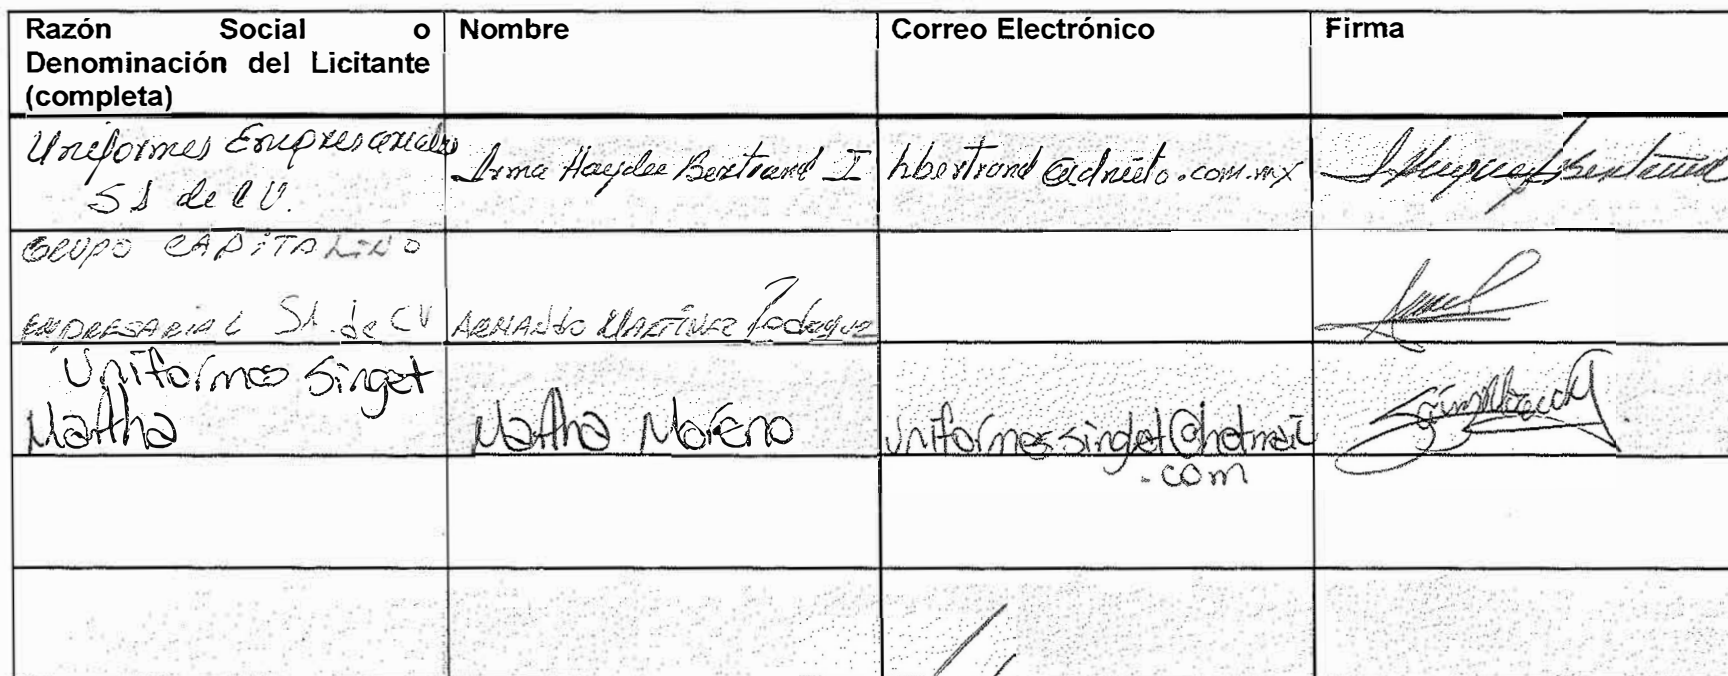 Razón Social o
Denominación del Licitante
(completa)
Nombre
Correo Electrónico
Firma
Uniformes Empresariales
SA de CV.
Irma Haydee Bertrand I
hbertrand@adnieto.com.mx
GRUPO CAPITALINO
EMPRESARIAL SA. de CV
ARMANDO MARTINEZ Rodriguez
Uniformes Singet
Martha
Martha Moreno
uniformessinget@hotmail
.com